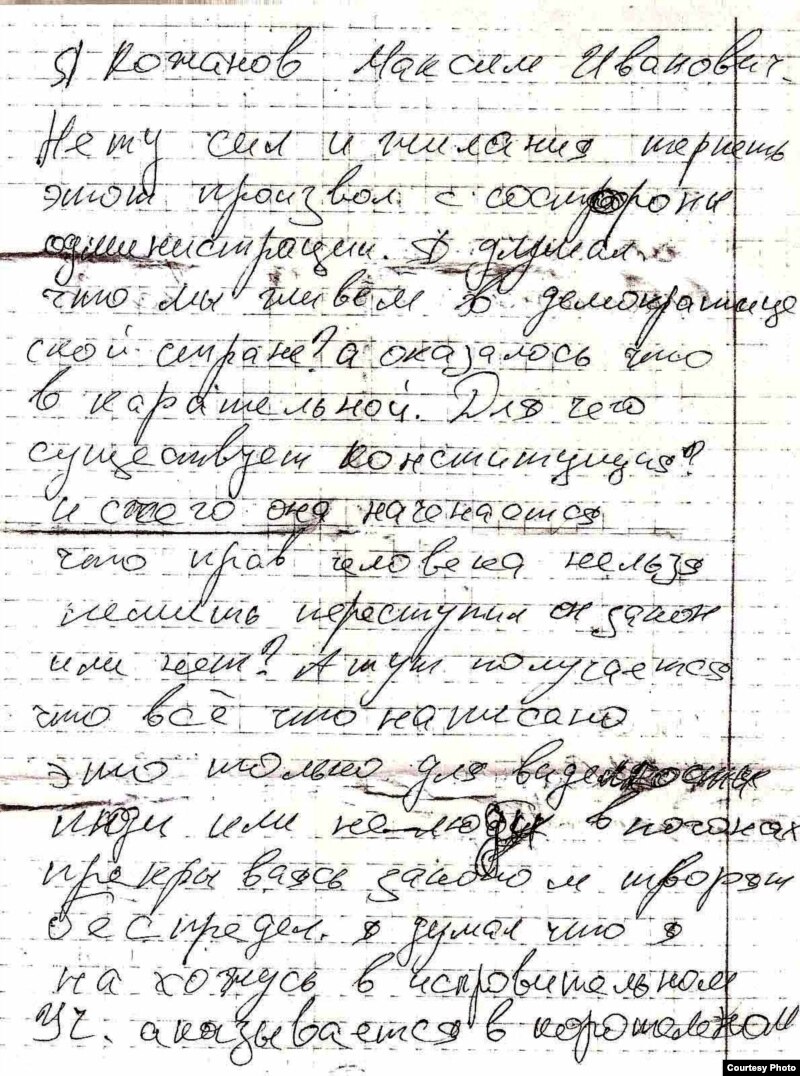 Я Кожанов Максим Иванович.
Нету сил и жилания терпеть
этот произвол с состороны
одминистрации. Я думал
что мы живём в демократиче
ской стране? а оказалось что
в карательной. Для чего
существует конституция?
и счего она наченается
что прав человека нельзя
лешить переступил он закон
или нет? А тут получается
что всё что написано
это только для виде
люди или не люди в погонах
прекрываясь законом творят
беспредел. я думал что я
на хожусь в исправительном
Уч. аказывается в корательном
Courtesy Photo